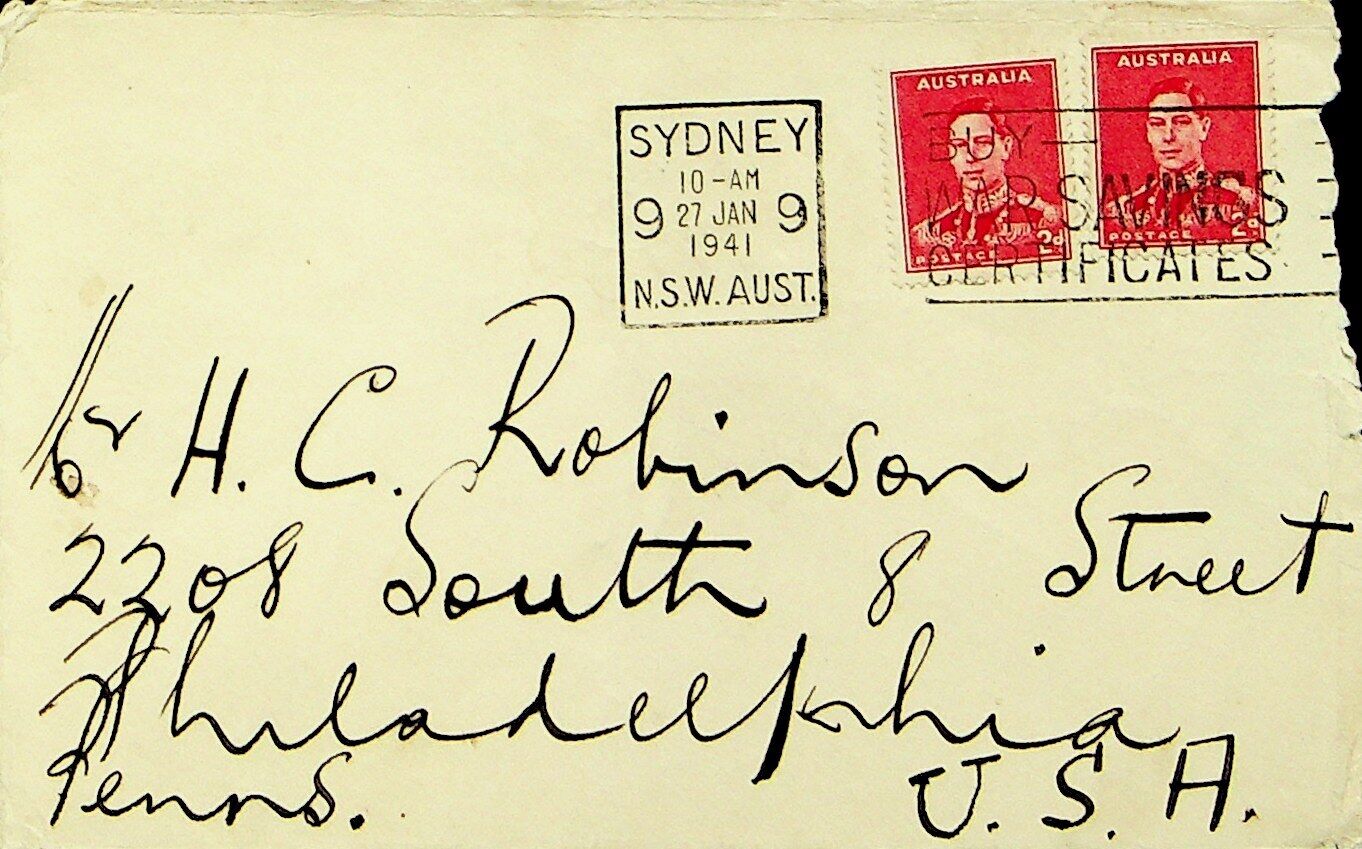 AUSTRALIA
POSTAGE 2d
AUSTRALIA
POSTAGE 2d
SYDNEY
10-AM
9 27 JAN 9
1941
N.S.W. AUST.
BUY
WAR SAVINGS
CERTIFICATES
Mr H. C. Robinson
2208 South 8 Street
Philadelphia
Penns. U.S.A.